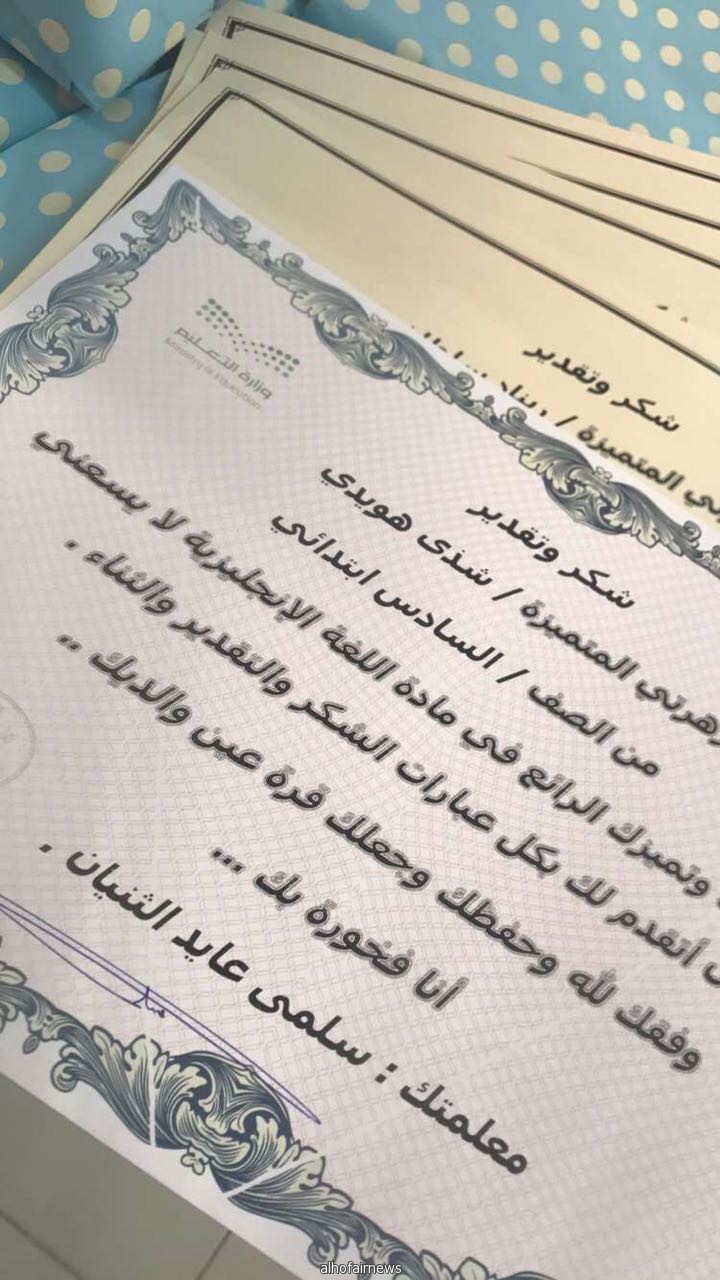 شكر وتقدير
ني المتميزة /
وزارة التعليم
Ministry of Education
شكر وتقدير
زهرتي المتميزة / شذى هويدي
من الصف / السادس ابتدائي
وتميزك الرائع في مادة اللغة الإنجليزية لا يسعني
أتقدم لك بكل عبارات الشكر والتقدير والثناء .
وفقك لله وحفظك وجعلك قرة عين والديك ..
أنا فخورة بك ...
معلمتك : سلمى عايد الثنيان .
alhofairnews